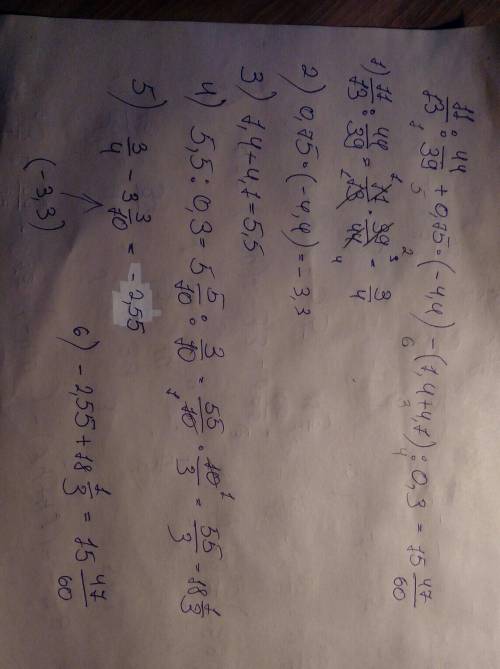 11/13 : 44/39 + 0,75 · (-4,4) - (1,4+4,1) : 0,3 = 15 47/60
1 5 2 6 3 4
1) 11/13 : 44/39 = 11/13 · 39/44 = 3/4
2) 0,75 · (-4,4) = -3,3
3) 1,4+4,1 = 5,5
4) 5,5 : 0,3 = 5 5/10 : 3/10 = 55/10 · 10/3 = 55/3 = 18 1/3
5) 3/4 - 3 3/10 = -2,55
(-3,3)
6) -2,55 + 18 1/3 = 15 47/60